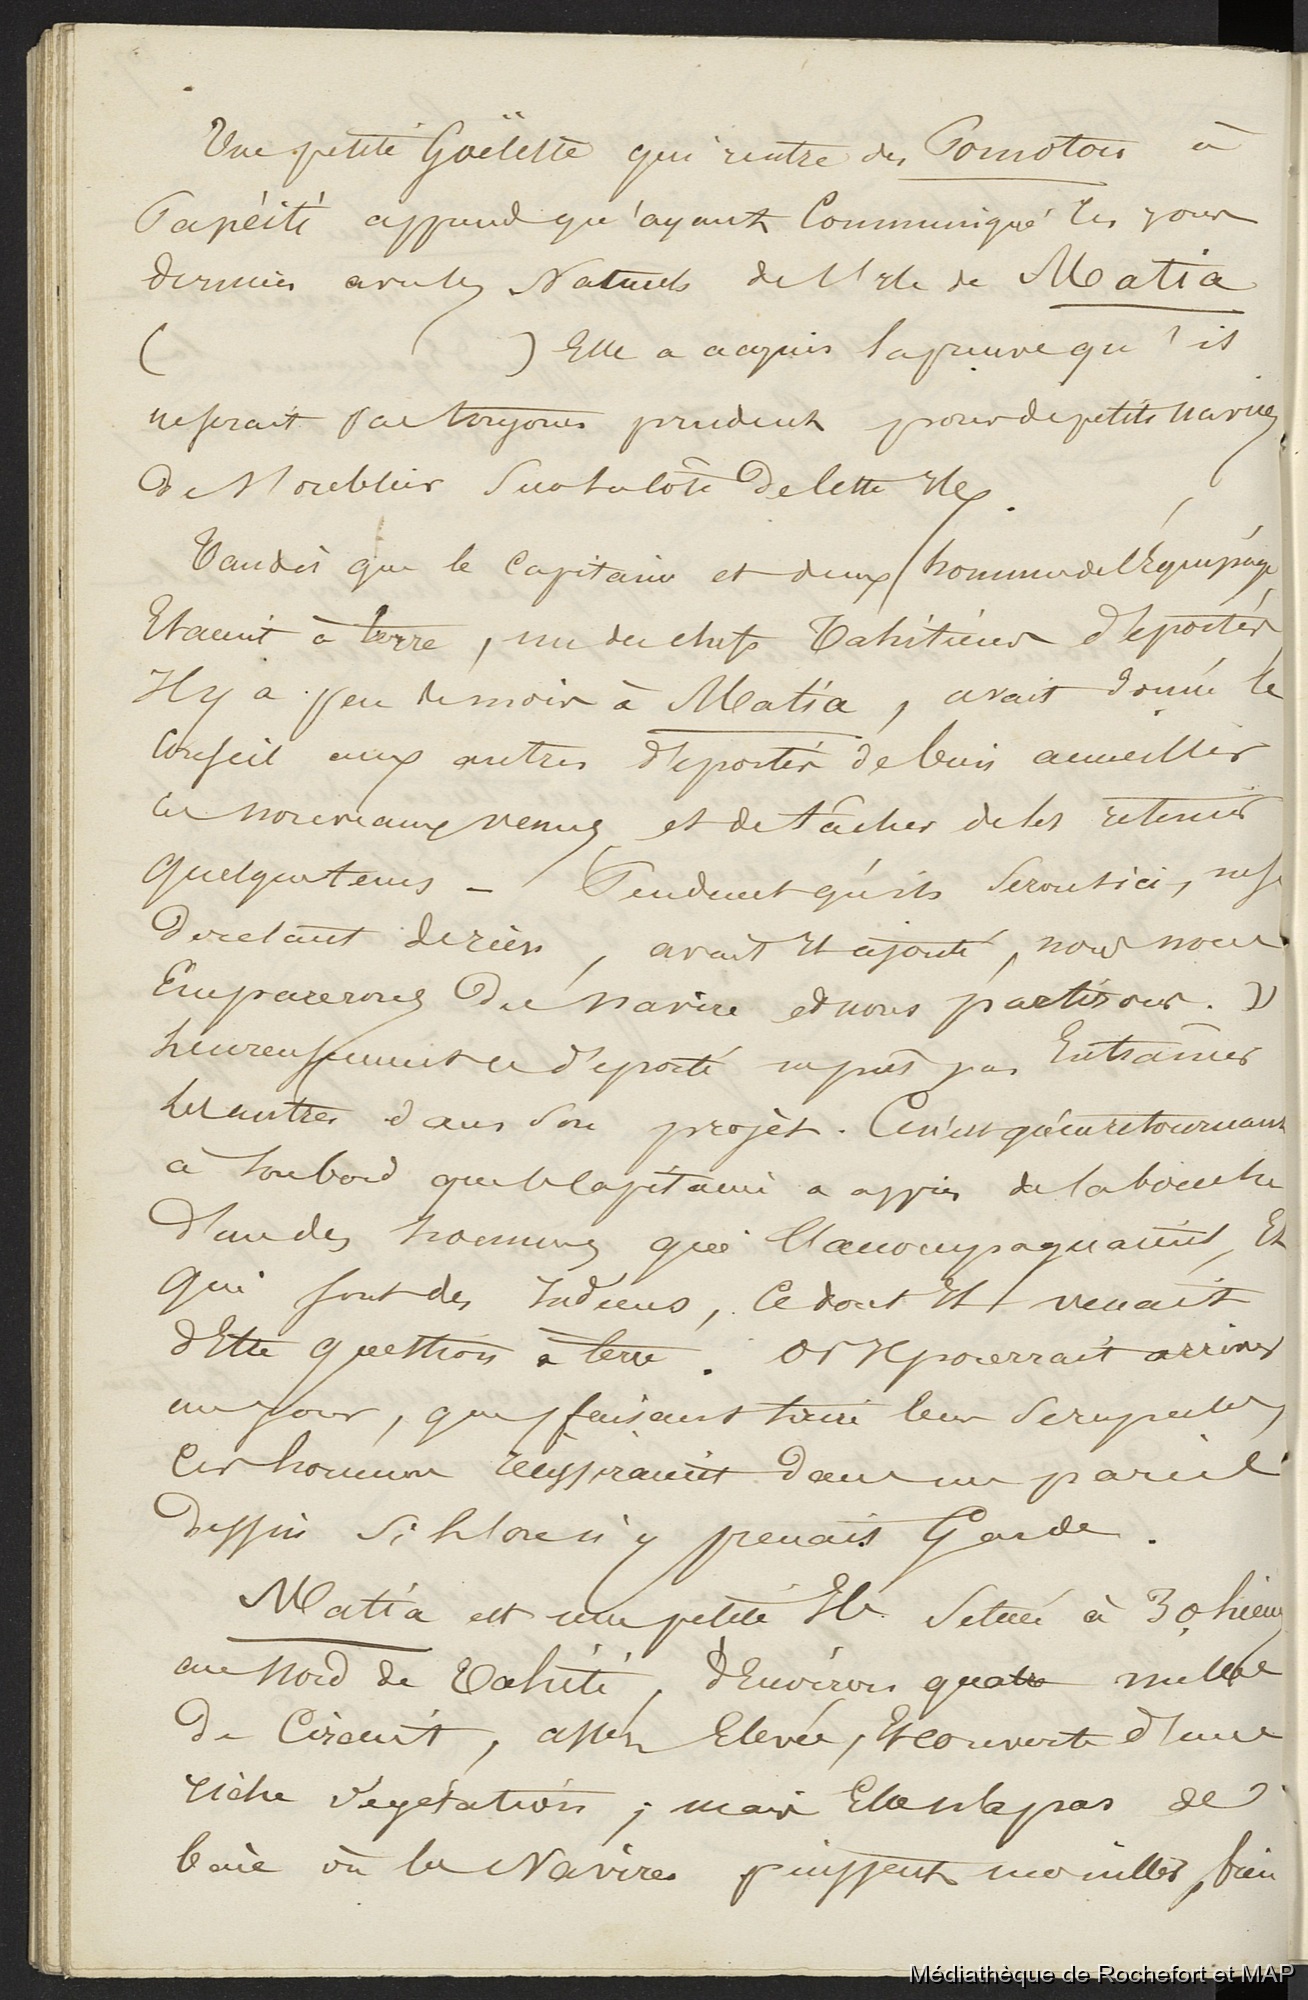 Une petite Goëlette qui rentre des Pomotou à
Papéïti apprend qu'ayant Communiqué les jour
dernier avec les Naturels de l'Ile de Matia
( ) Elle a acquis la preuve qu'il
ne serait pas toujours prudent pour de petits navires
de s'oublier sur la côte de cette Ile.
Tandis que le Capitaine et deux hommes de l'Équipage
Etaient à terre, un des chefs Tahitiens déportés
Il y a peu de mois à Matia, avait donné le
Conseil aux autres déportés de bien accueillir
les nouveaux venus et de tâcher de les retenir
quelque tems — Pendant qu'ils seront ici, ne se
doutant de rien, avait Il ajouté, nous nous
Emparerons du Navire et nous partirons. »
heureusement ce déporté ne put pas Entraîner
les autres dans son projet. Ce n'est qu'en retournant
à son bord que le Capitaine a appris de la bouche
d'un des hommes qui l'accompagnaient, Et
qui sont des Indiens, Ce dont Il venait
d'Etre question à terre. Or Il pourrait arriver
un jour, que faisant taire leur Scrupules,
Ces hommes réussiraient dans un pareil
dessein si l'on n'y prenait Garde.
Matia est une petite Ile située à 30 lieues
au Nord de Tahiti, d'Environ quatre milles
de Circuit, assez Elevée, Et couverte d'une
riche végétation ; mais Elle n'a pas de
baie où les Navires puissent mouiller, bien
Médiathèque de Rochefort et MAP